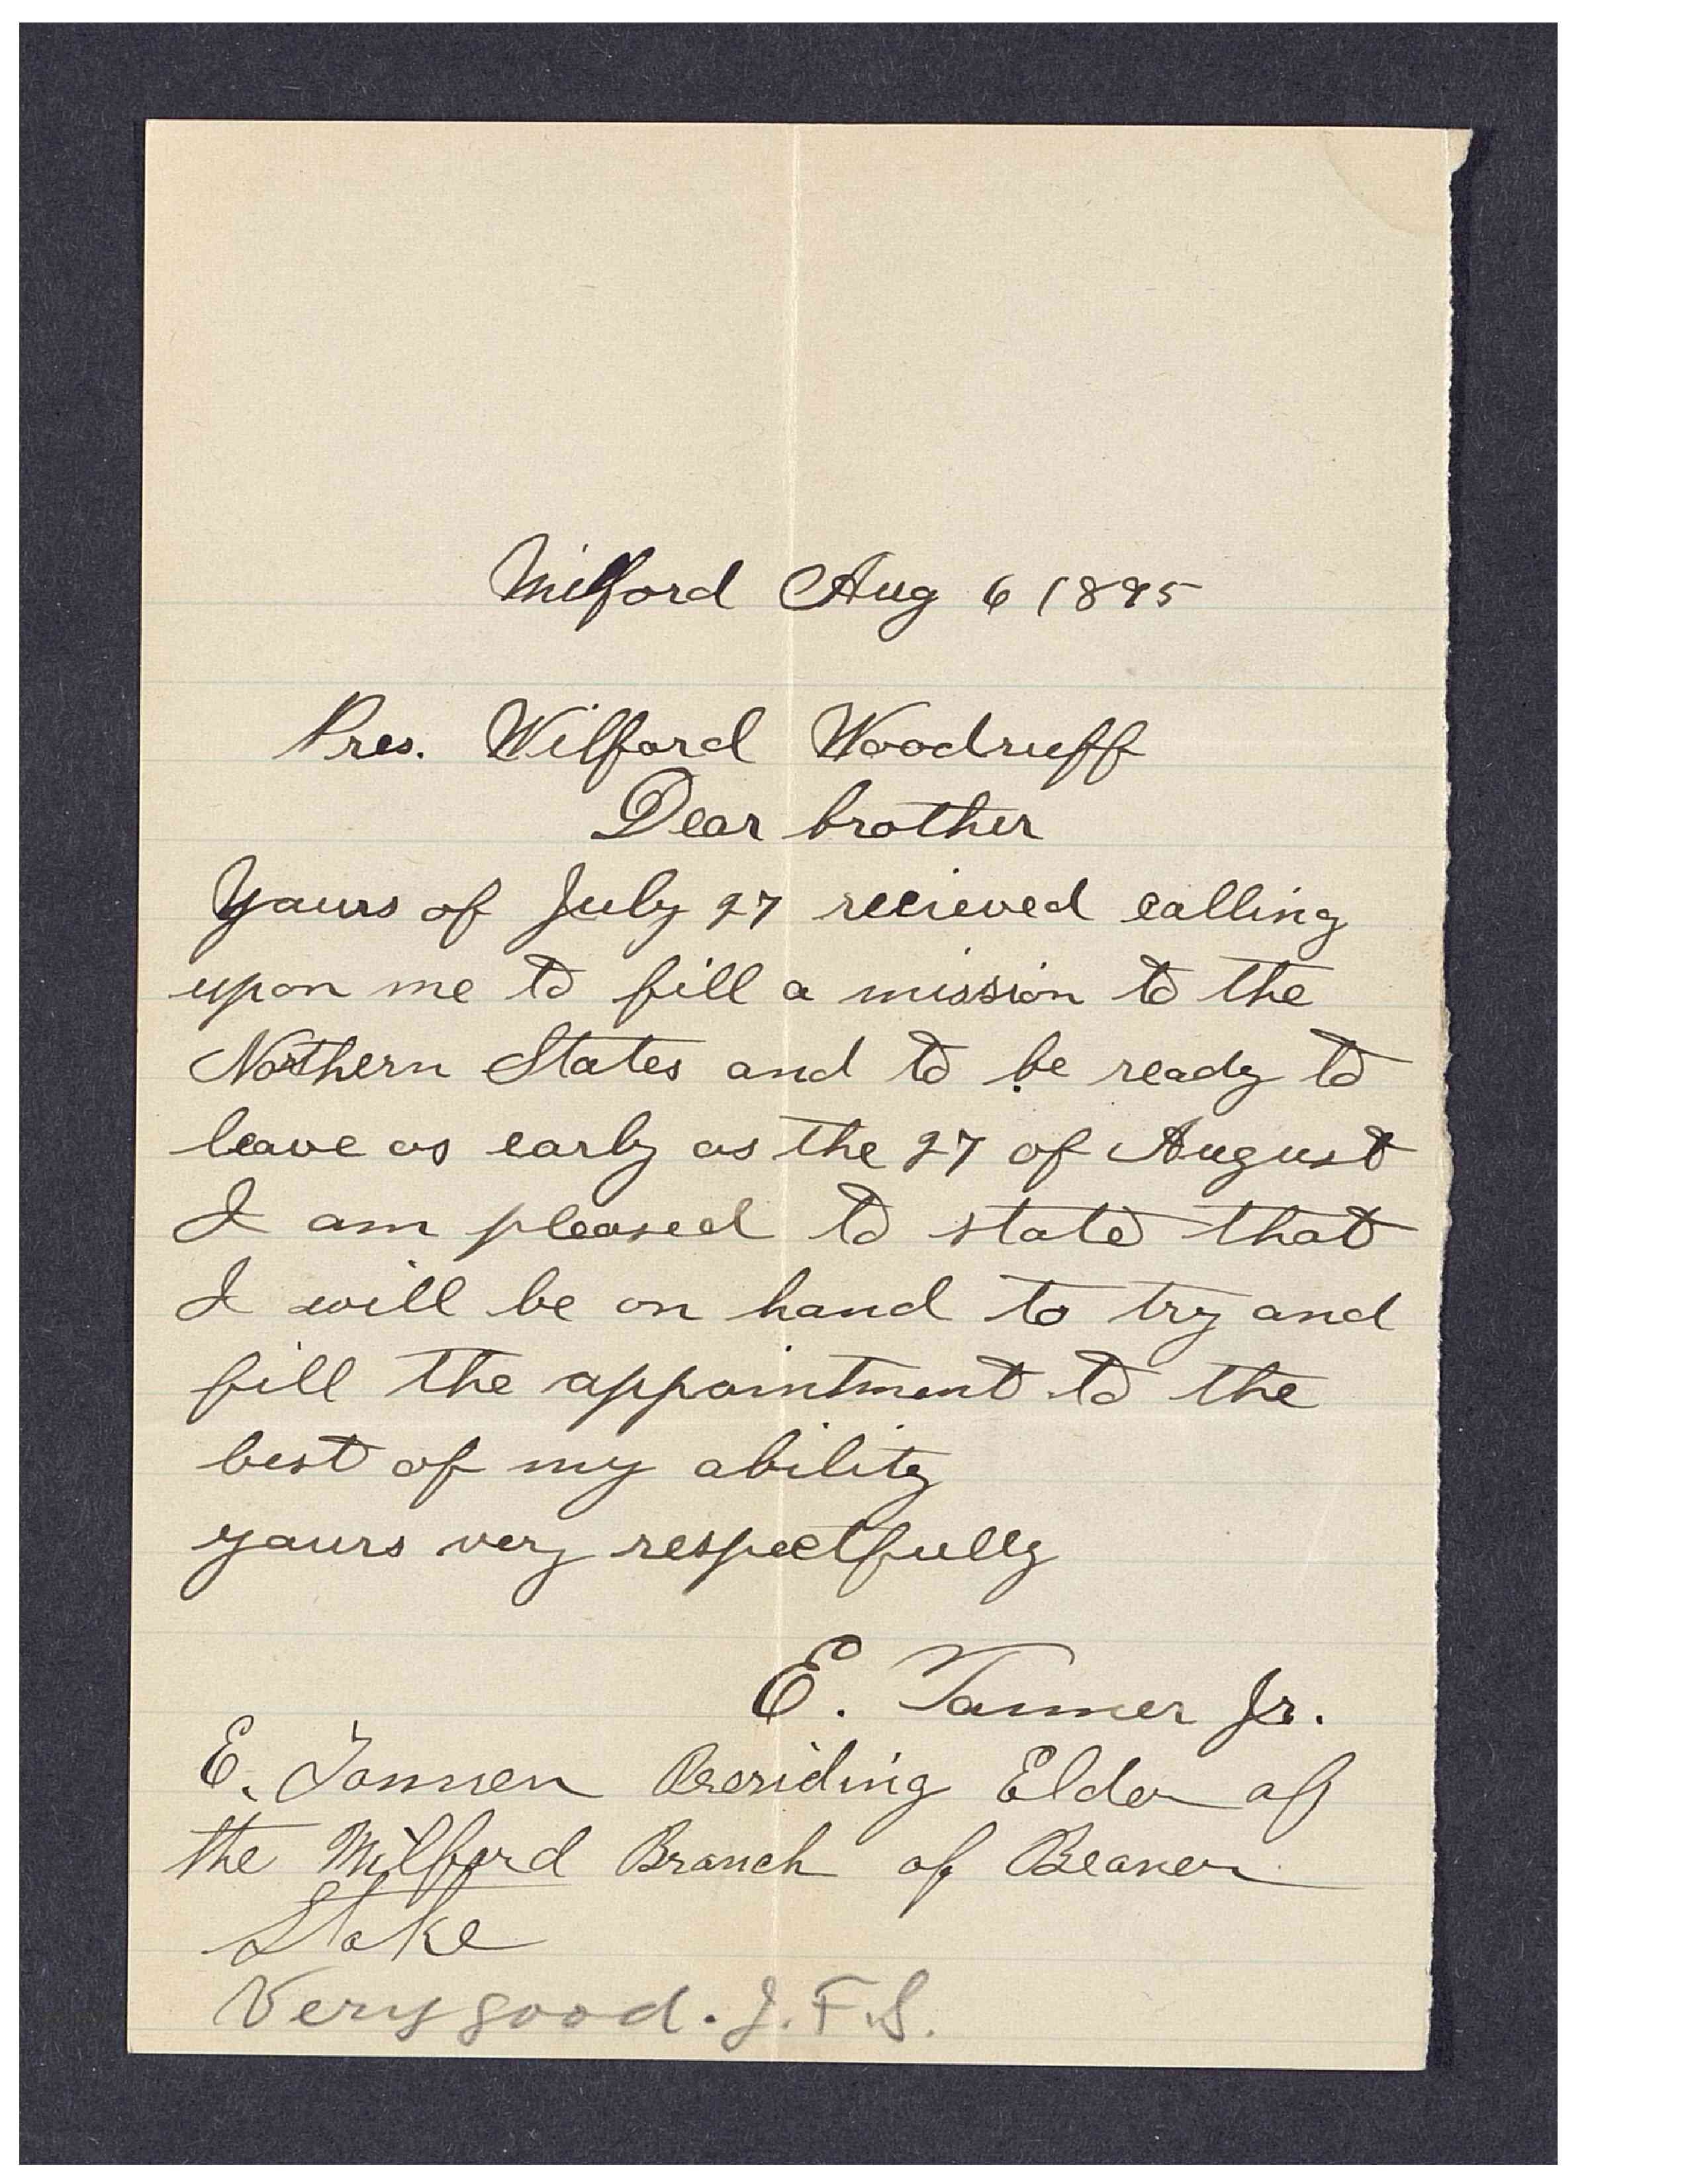 Milford Aug 6 1895
Pres. Wilford Woodruff
Dear brother
Yours of July 27 recieved calling
upon me to fill a mission to the
Northern States and to be ready to
leave as early as the 27 of August
I am pleased to state that
I will be on hand to try and
fill the appointment to the
best of my ability
yours very respectfully
E. Tanner Jr.
E. Tanner Presiding Elder of
the Milford Branch of Beaver
Stake
Very good. J. F. S.